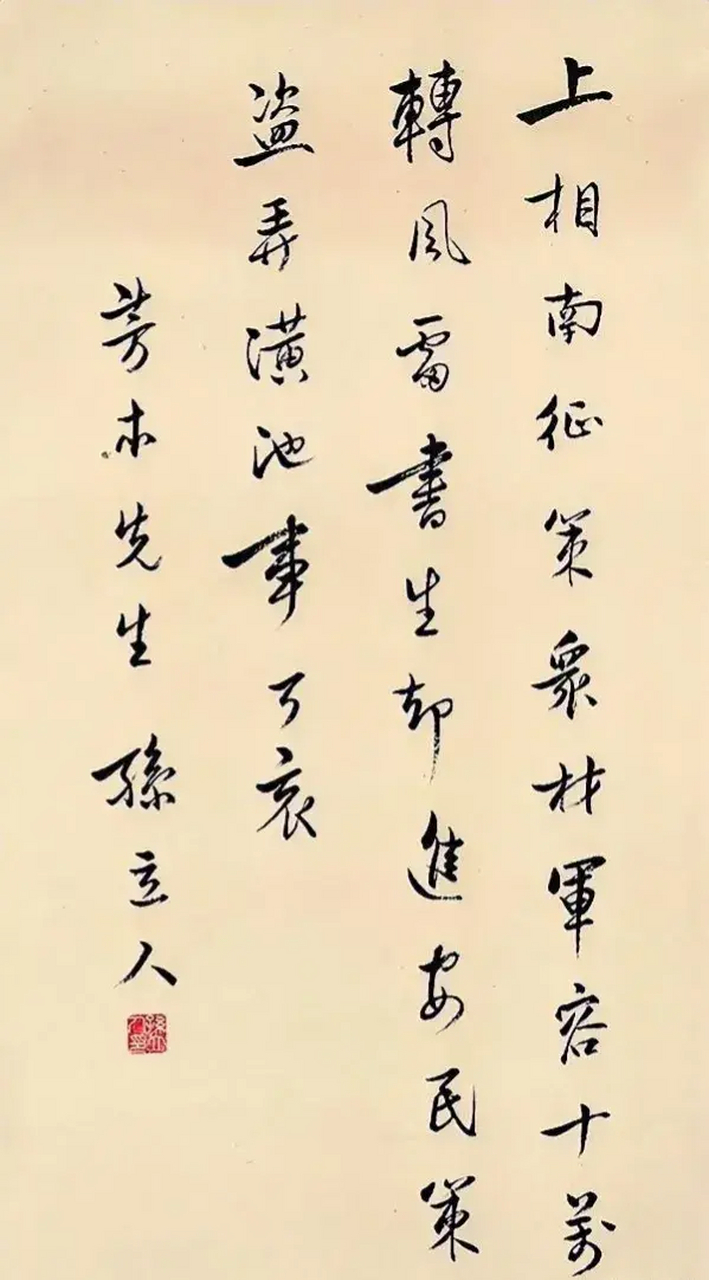 上相南征策衆材軍容十萬
轉風雷書生却進安民策
盜弄潢池事可哀
芳木先生 孫立人